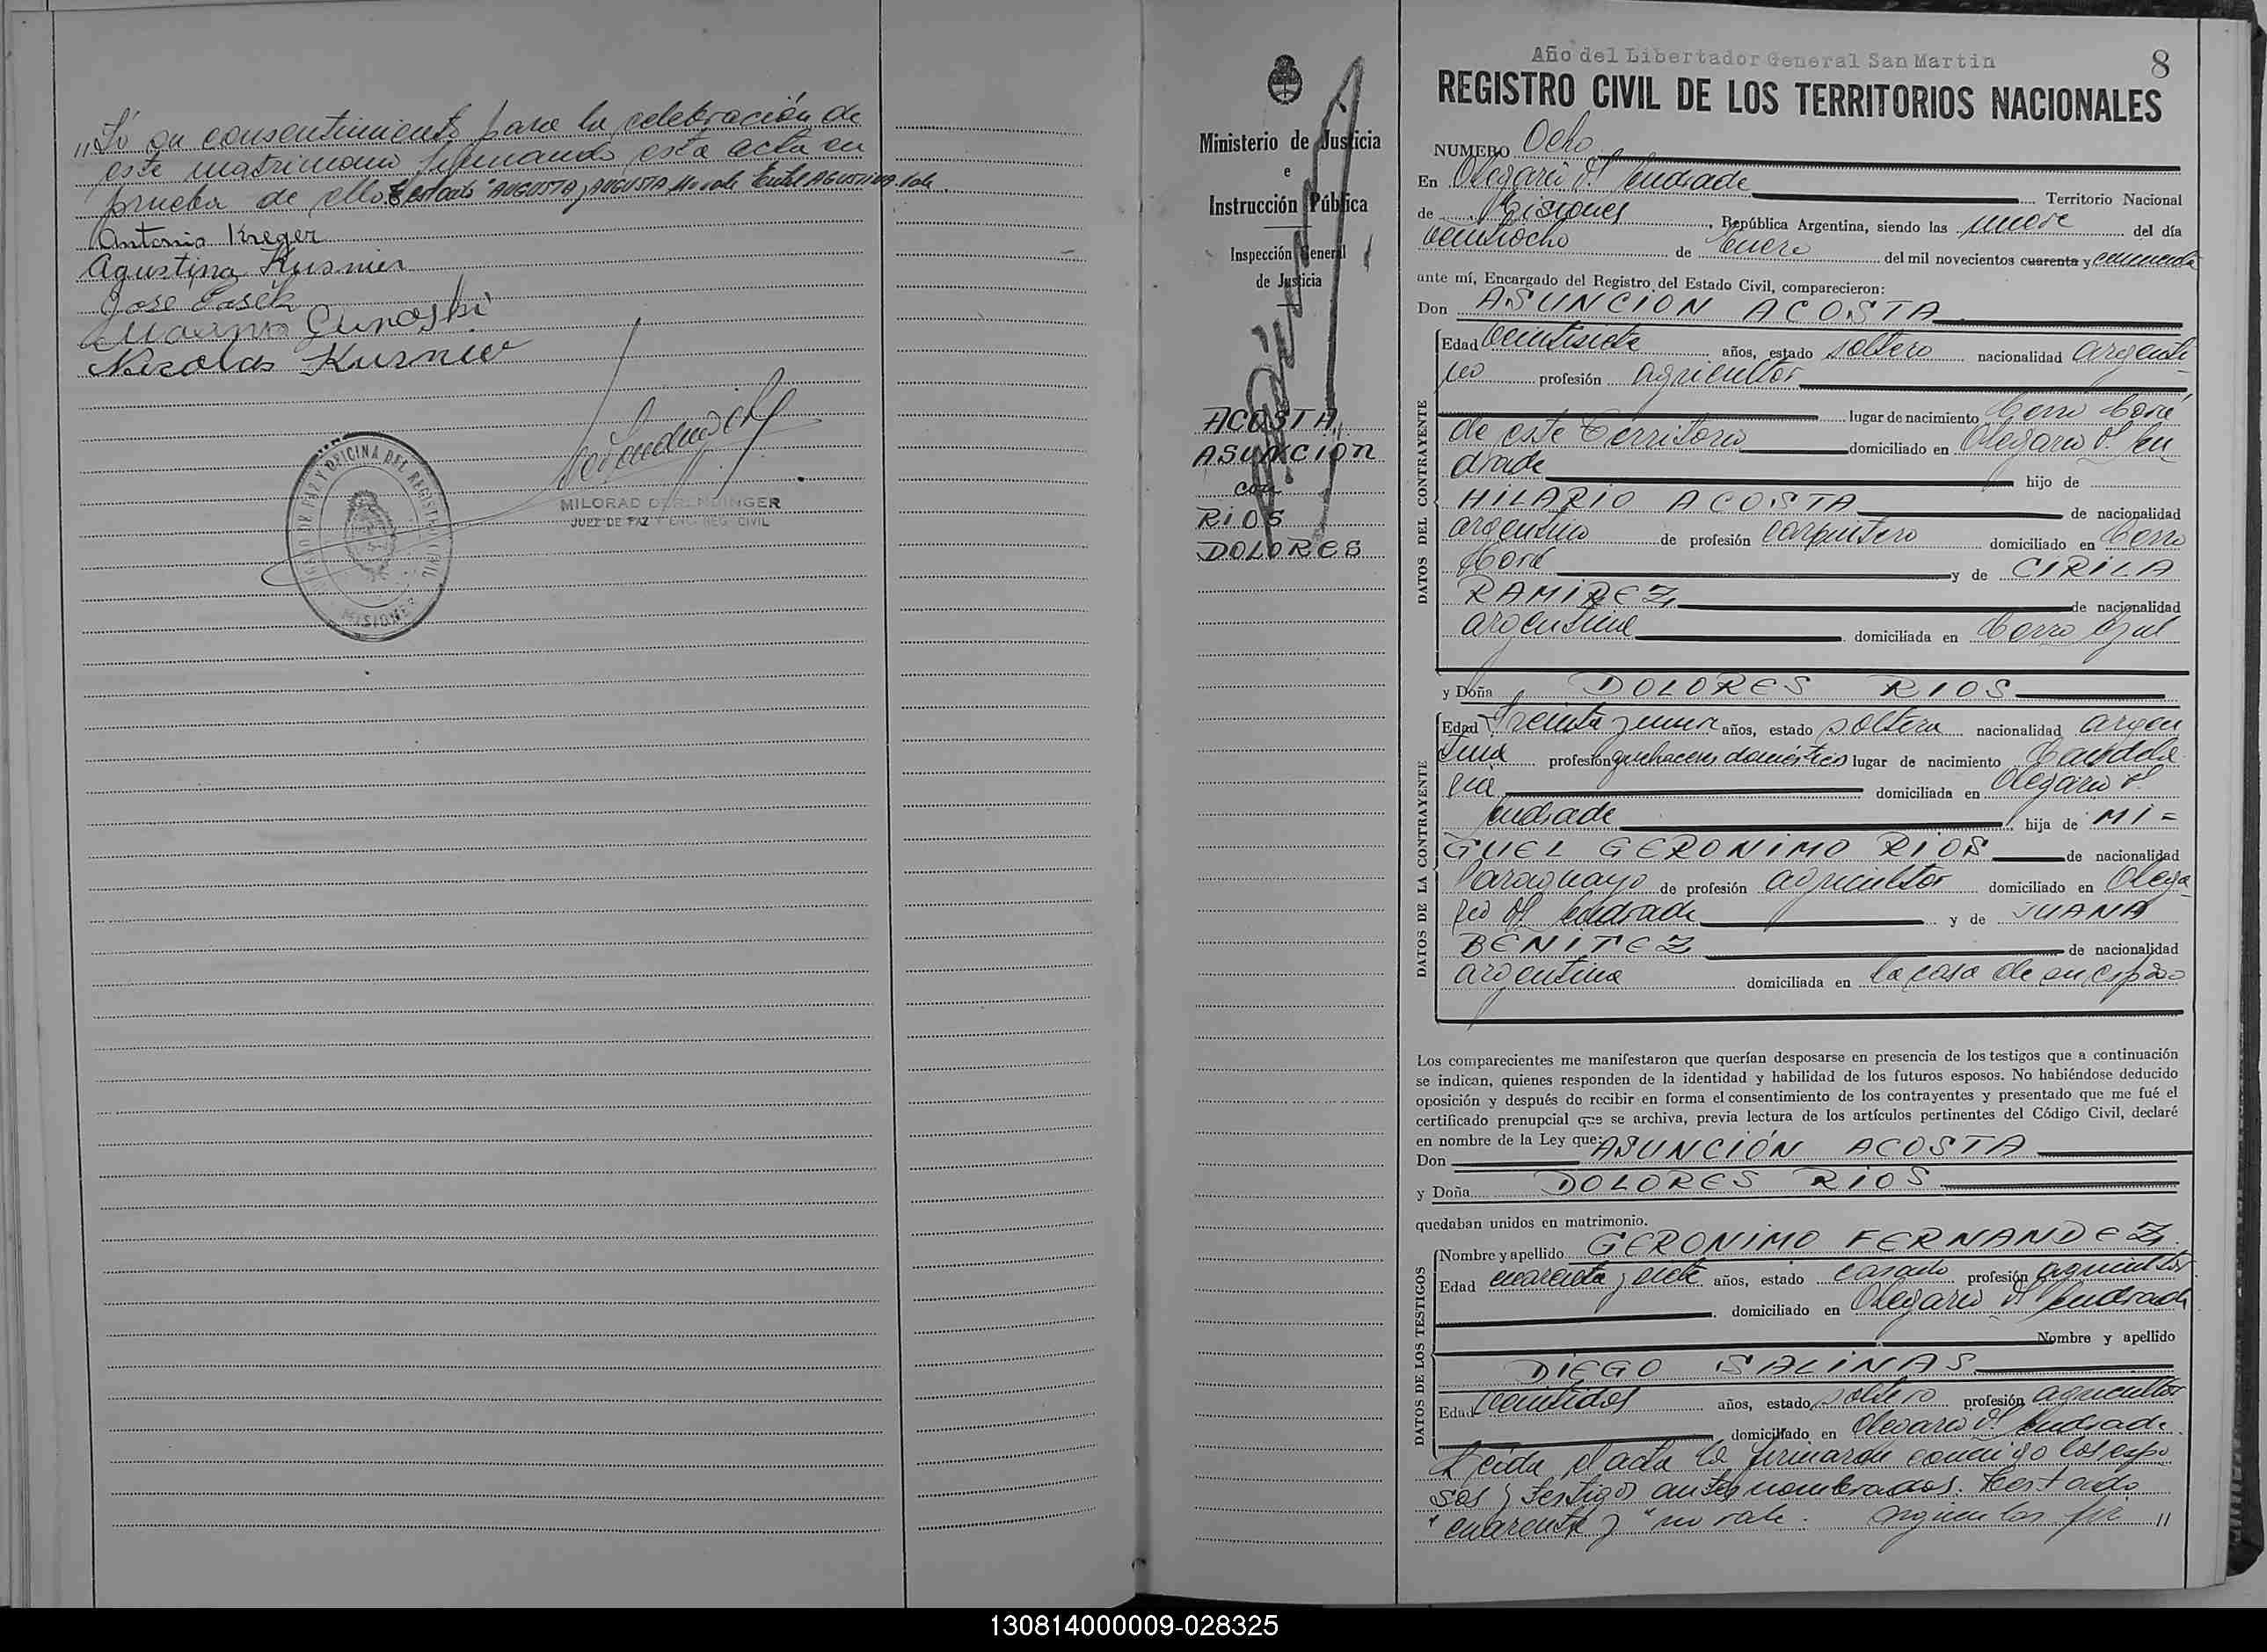 "Dó su consentimiento para la celebración de
este matrimonio firmando esta acta en
prueba de ello. Testado "AUGUSTA y AUGUSTA No vale Entrel AGUSTINA. Vale.
Antonio Kreger
Agustina Kusnier
Jose Pasek
Nicolas Kusnier
JUZGADO DE PAZ Y OFICINA DEL REGISTRO CIVIL
MISIONES
MILORAD DERENDINGER
JUEZ DE PAZ Y ENC. REG. CIVIL
Ministerio de Justicia
e
Instrucción Pública
Inspección General
de Justicia
ACOSTA,
ASUNCIÓN
con
RIOS
DOLORES
8
Año del Libertador General San Martin
REGISTRO CIVIL DE LOS TERRITORIOS NACIONALES
NUMERO Ocho
En Olegario V. Andrade Territorio Nacional
de Misiones, República Argentina, siendo las nueve del día
veintiocho de Enero del mil novecientos cuarenta y cincuenta
ante mí, Encargado del Registro del Estado Civil, comparecieron:
Don ASUNCIÓN ACOSTA
DATOS DEL CONTRAYENTE
Edad veintisiete años, estado soltero nacionalidad argenti-
no profesión agricultor
lugar de nacimiento Cerro Corá
de este Territorio domiciliado en Olegario V. An
drade hijo de
HILARIO ACOSTA de nacionalidad
argentino de profesión carpintero domiciliado en Cerro
Corá y de CIRILA
RAMIREZ de nacionalidad
argentina domiciliada en Cerro Azul
y Doña DOLORES RIOS
DATOS DE LA CONTRAYENTE
Edad Treinta y nueve años, estado soltera nacionalidad argen
tina profesión quehaceres domésticos lugar de nacimiento Candela
ria domiciliada en Olegario V.
Andrade hija de MI=
GUEL GERONIMO RIOS de nacionalidad
Paraguayo de profesión agricultor domiciliado en Olega-
rio V. Andrade y de JUANA
BENITEZ de nacionalidad
argentina domiciliada en la casa de su esposo
Los comparecientes me manifestaron que querían desposarse en presencia de los testigos que a continuación
se indican, quienes responden de la identidad y habilidad de los futuros esposos. No habiéndose deducido
oposición y después de recibir en forma el consentimiento de los contrayentes y presentado que me fué el
certificado prenupcial que se archiva, previa lectura de los artículos pertinentes del Código Civil, declaré
en nombre de la Ley que:
Don ASUNCIÓN ACOSTA
y Doña DOLORES RIOS
quedaban unidos en matrimonio.
DATOS DE LOS TESTIGOS
Nombre y apellido GERONIMO FERNANDEZ
Edad cuarenta y siete años, estado casado profesión agricultor
domiciliado en Olegario V. Andrade
Nombre y apellido
DIEGO SALINAS
Edad veintidos años, estado soltero profesión agricultor
domiciliado en Olegario V. Andrade
Leída el acta la firmaron conmigo los espo
sos y testigos antes nombrados. Testado
"cuarenta y" no vale. Siguen las fir "
130814000009-028325